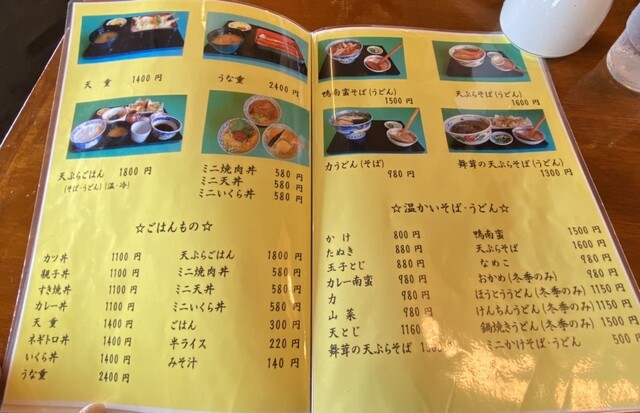 天重 1400円
うな重 2400円
天ぷらごはん 1800円
(そば・うどん)(温・冷)
ミニ焼肉丼 580円
ミニ天丼 580円
ミニいくら丼 580円
☆ごはんもの☆
カツ丼 1100円
親子丼 1100円
すき焼丼 1100円
カレー丼 1100円
天重 1400円
ネギトロ丼 1400円
いくら丼 1400円
うな重 2400円
天ぷらごはん 1800円
ミニ焼肉丼 580円
ミニ天丼 580円
ミニいくら丼 580円
ごはん 300円
半ライス 220円
みそ汁 140円
鴨南蛮そば(うどん)
1500円
天ぷらそば(うどん)
1600円
力うどん(そば)
980円
舞茸の天ぷらそば(うどん)
1300円
☆温かいそば・うどん☆
かけ 800円
たぬき 880円
玉子とじ 880円
カレー南蛮 980円
力 980円
山菜 980円
天とじ 1160
舞茸の天ぷらそば
鴨南蛮 1500円
天ぷらそば 1600円
なめこ 980円
おかめ(冬季のみ) 980円
ほうとううどん(冬季のみ) 1150円
けんちんうどん(冬季のみ) 1150円
鍋焼きうどん(冬季のみ) 1500円
ミニかけそば・うどん 500円